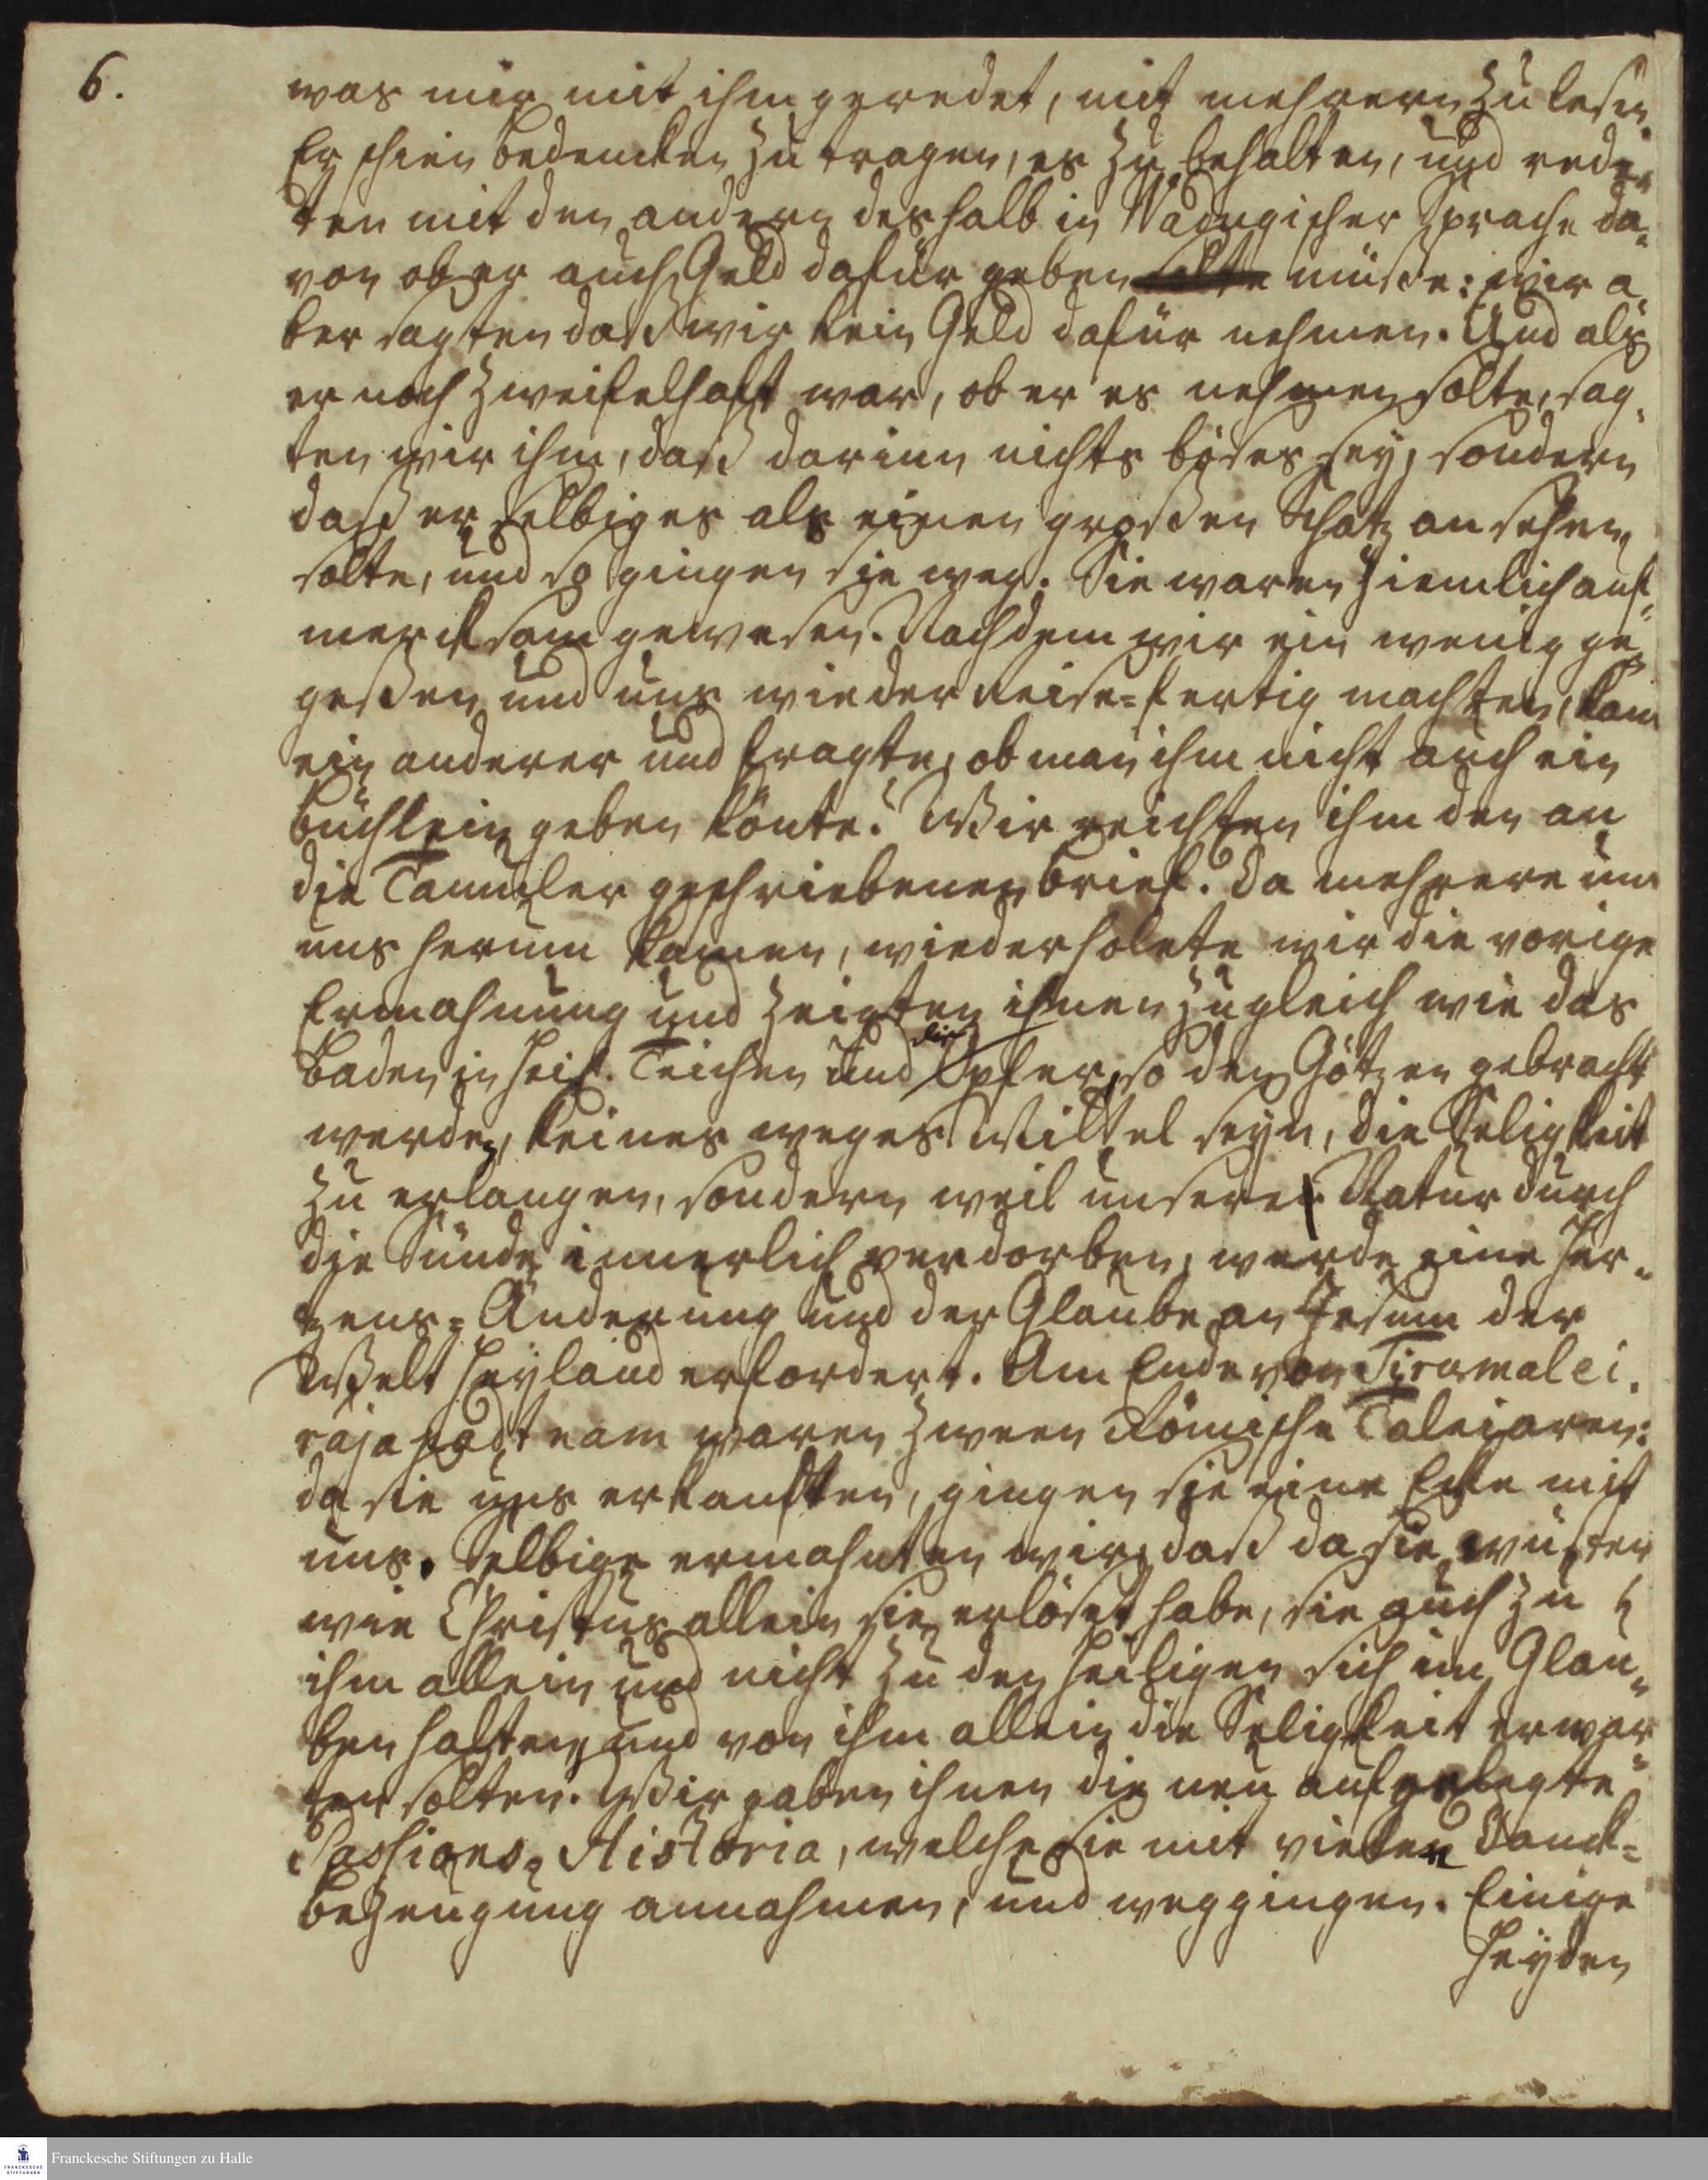 6.
was wir mit ihm geredet, mit mehrern zu lesen.
Er schien bedencken zu tragen, es zu behalten, und rede-
ten mit den andern deshalb in Wadugischer Sprache da-
von ob er auch Geld dafür geben solte müste: wir a-
ber sagten daß wir kein Geld dafür nehmen. Und als
er noch zweifelhaft war, ob er es nehmen solte, sag-
ten wir ihm, daß darinn nichts böses sey, sondern
daß er selbiges als einen großen Schatz ansehen
solte, und so gingen sie weg. Sie waren ziemlich auf-
mercksam gewesen. Nachdem wir ein wenig ge-
geßen und uns wieder reise-fertig machten, kam
ein anderer und fragte, ob man ihm nicht auch ein
büchlein geben könte? Wir reichten ihm den an
die Tamuler geschriebenen brief. Da mehrere um
uns herum kamen, wiederholete wir die vorige
Ermahnung und zeigten ihnen zugleich wie das
Baden in heil. Teichen und die Opfer, so den Götzen gebracht
werden, keines weges Mittel seyn, die Seligkeit
zu erlangen, sondern weil unsere Natur durch
die Sünde innerlich verdorben, werde eine Her-
tzens-Änderung und der Glaube an Jesum der
Welt Heyland erfordert. Am Ende von Tirumalei-
rájapadtnam waren zween Römische Taleiaren:
da sie uns erkanten, gingen sie eine Ecke mit
uns. Selbige ermahnten wir, daß da sie wüsten
wie Christus allein sie erlöset habe, sie auch zu
ihm allein und nicht zu den Heiligen sich im Glau-
ben halten, und von ihm allein die Seligkeit erwar-
ten solten. Wir gaben ihnen die neu aufgelegte
Passions-Historia, welche sie mit vielen Danck-
bezeugung annahmen, und weggingen. Einige
Heyden
FRANCKESCHE STIFTUNGEN
Franckesche Stiftungen zu Halle